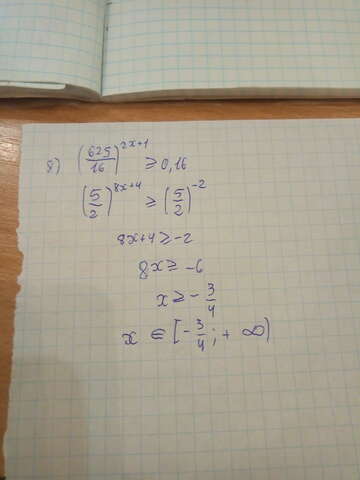 8) (625/16)^(2x+1) ≥ 0,16
(5/2)^(8x+4) ≥ (5/2)^(-2)
8x+4 ≥ -2
8x ≥ -6
x ≥ - 3/4
x ∈ [- 3/4; + ∞)